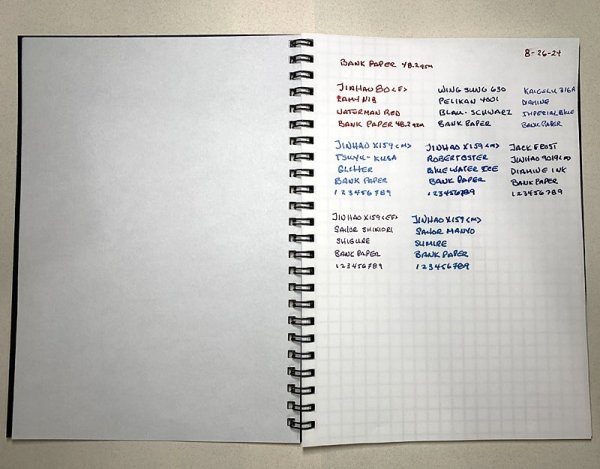 8-26-24
BANK PAPER 48.2gsm
JINHAO 80 <F>
LAMY NIB
WATERMAN RED
BANK PAPER 48.2gsm
WING SUNG 630
PELIKAN 4001
BLAU-SCHWARZ
BANK PAPER
KAIGELU 316A
DIAMINE
IMPERIAL BLUE
BANK PAPER
JINHAO X159 <M>
TSUYU-KUSA
GLITTER
BANK PAPER
123456789
JINHAO X159 <M>
ROBERT OSTER
BLUE WATER ICE
BANK PAPER
123456789
JACK FROST
JINHAO 9019 <M>
DIAMINE INK
BANK PAPER
123456789
JINHAO X159 <EF>
SAILOR SHIKIORI
SHIGURE
BANK PAPER
123456789
JINHAO X159 <M>
SAILOR MANYO
SUMIRE
BANK PAPER
123456789